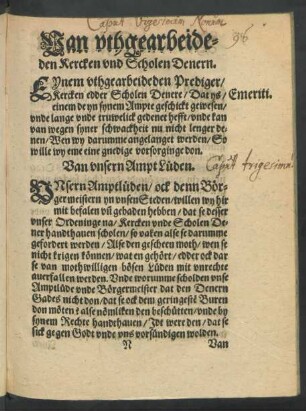 Caput Vigesimum Nonum
96
Van vthgearbeide-
den Kercken vnd Scholen Denern.
EYnem vthgearbeideden Prediger/
Kercken edder Scholen Denere/ Dat ys/
einem de yn synem Ampte geschickt gewesen/
vnde lange vnde truwelick gedenet hefft/ vnde kan
van wegen syner schwackheit nu nicht lenger de-
nen/ Wen wy darumme angelanget werden/ So
wille wy eme eine gnedige vorsorginge don.
Emeriti.
Van vnsern Ampt Lüden.
Caput trigesimum
VNsern Amptlüden/ ock denn Bör-
germeistern yn vnsen Steden/ willen wy hir
mit befalen vñ gebaden hebben/ dat se desser
vnser Ordeninge na/ Kercken vnde Scholen De-
ner handthauen scholen/ so vaken alse se darumme
gefordert werden/ Alse den gescheen moth/ wen se
nicht krigen können/ wat en gehört/ edder ock dar
se van mothwilligen bösen Lüden mit vnrechte
auerfallen werden. Vnde worumme scholden vnse
Amptlüde vnde Börgermeister dat den Denern
Gades nicht don/ dat se ock dem geringesté Buren
don möten? alse nömlicken den beschütten/ vnde by
synem Rechte handthauen/ Idt were den/ dat se
sick gegen Godt vnde vns vorsündigen wolden.
N Van